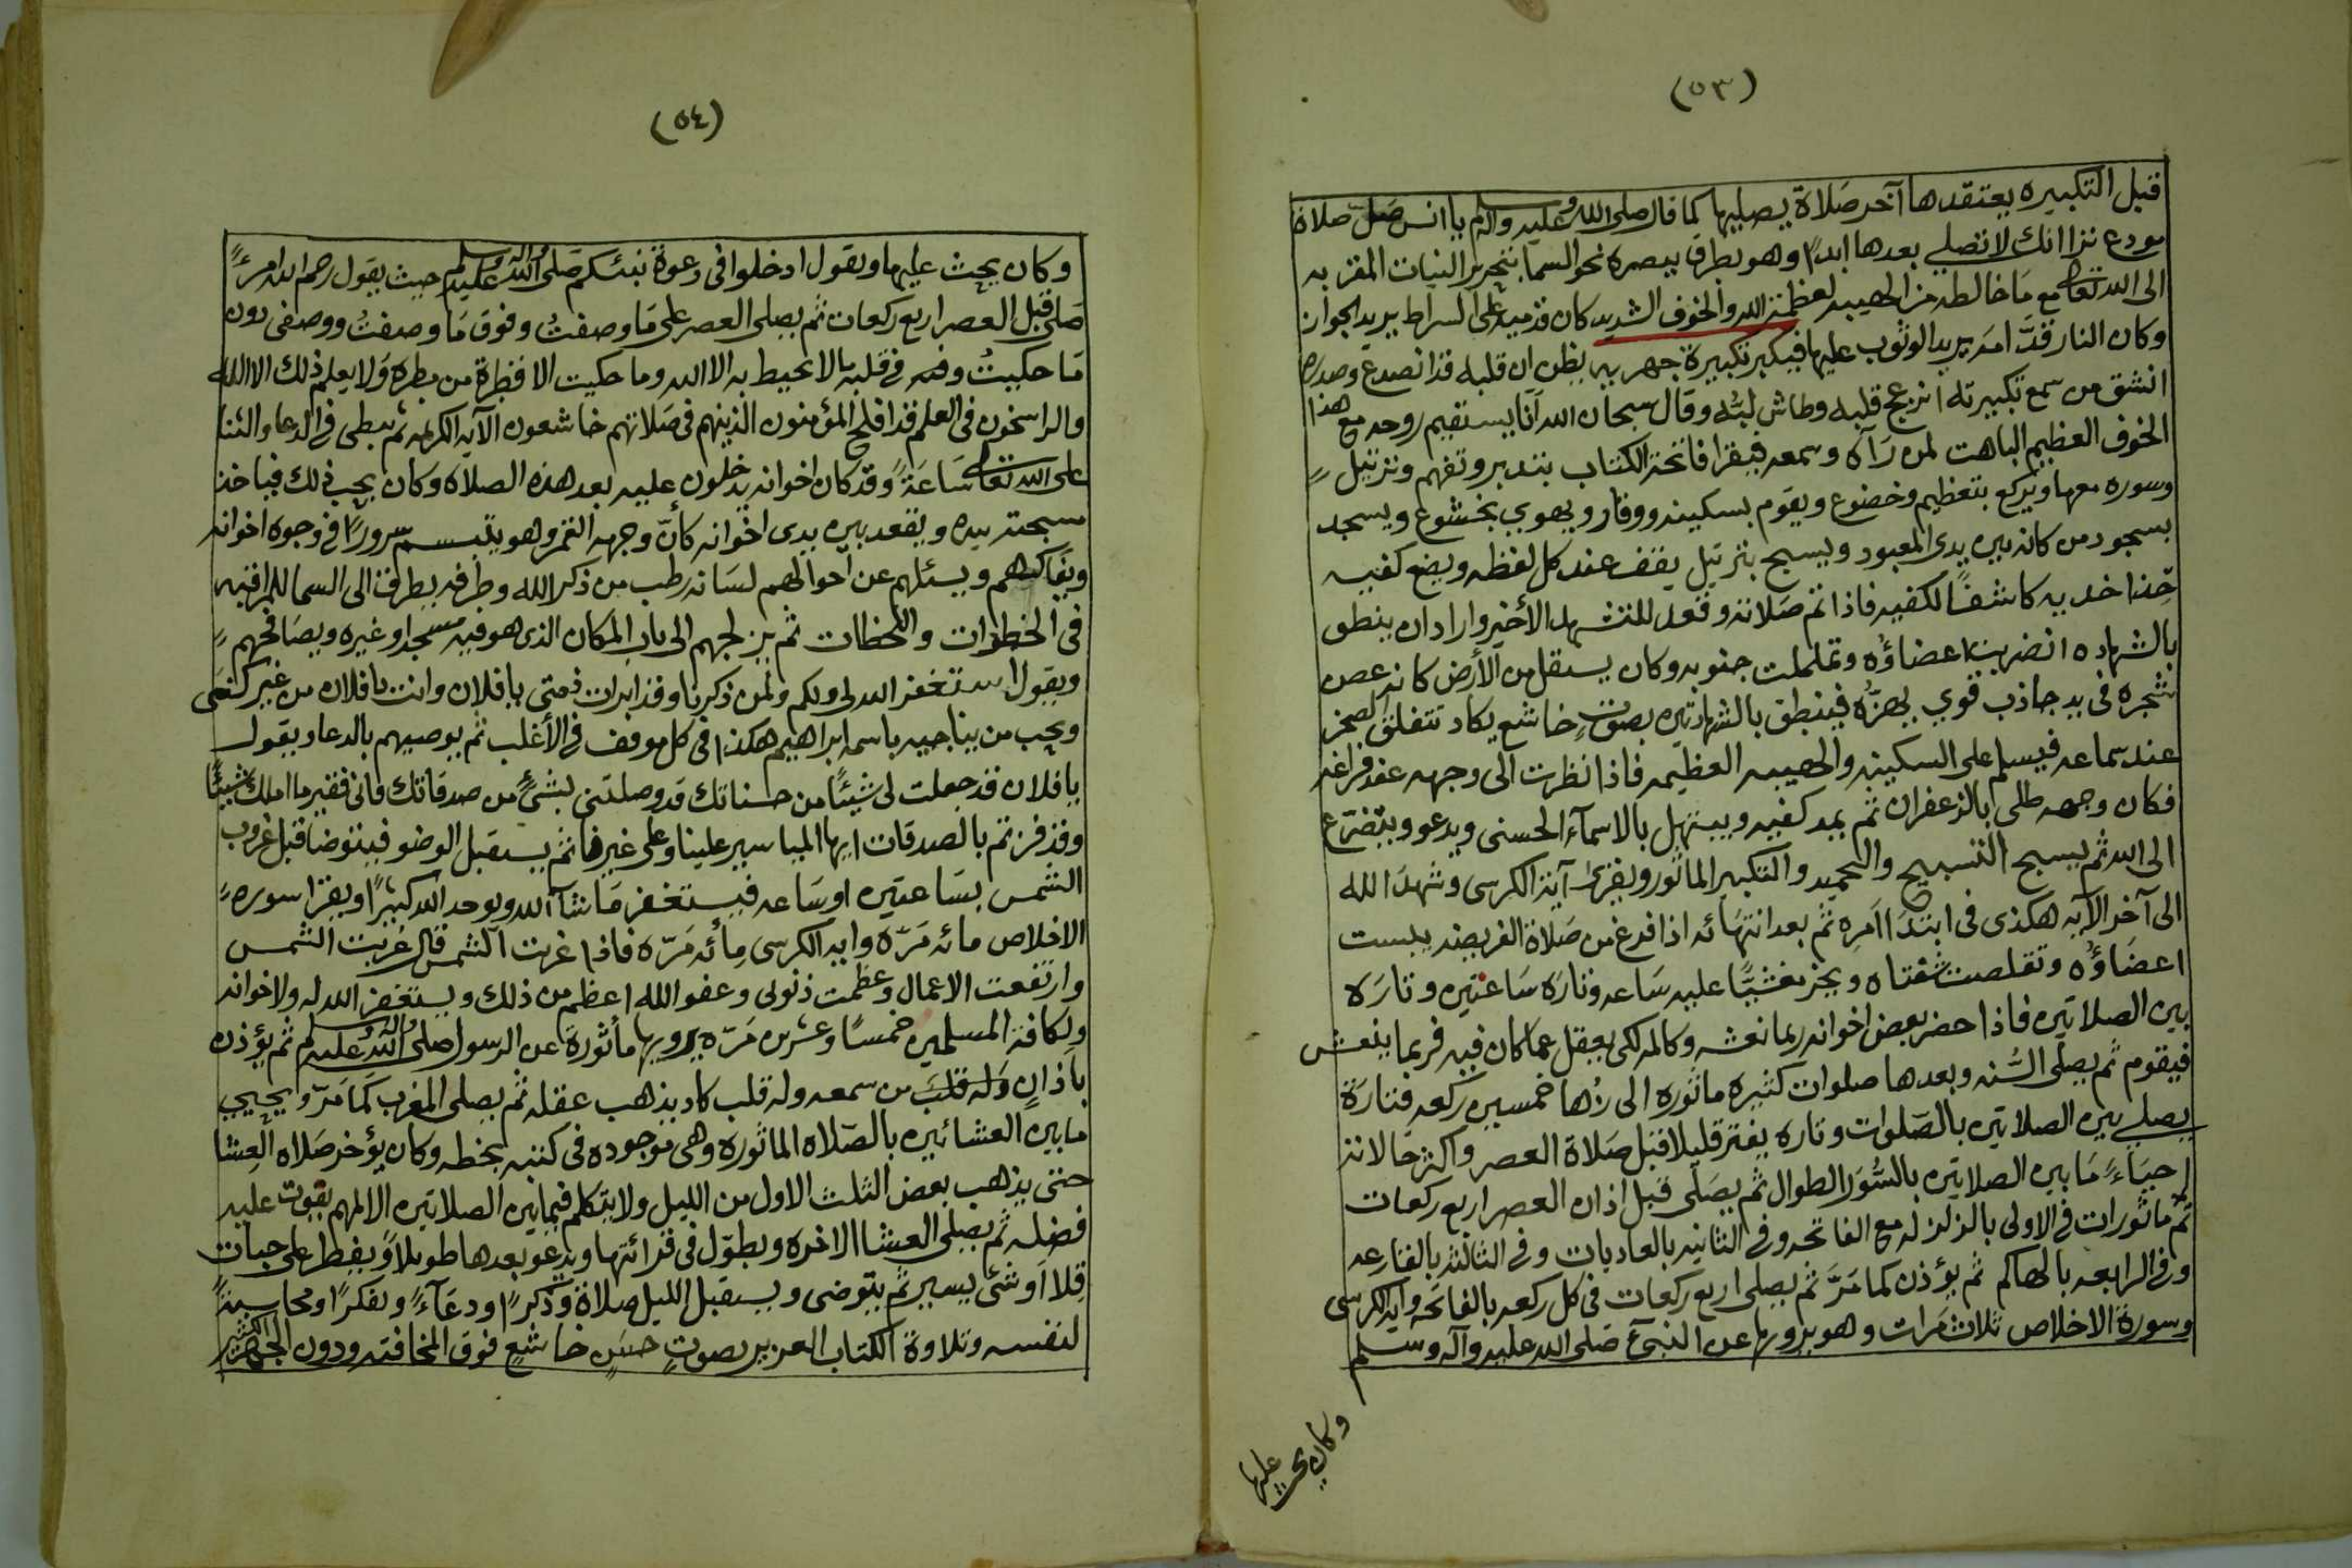 (٥٣)
قبل التكبيره يعتقدها آخر صلاة يصليها كما قال صلى الله عليه وآله وسلم يا انس صل صلاة
مودع ترا انك لا تصلي بعدها ابدًا وهو بطرف ببصره نحو السما بتحرير النيات المقربه
الى الله تعالى مع ما خالطه من الهيبه لعظمة الله والخوف الشديد كان قدميه على السراط يريد الجواز
وكان النار قدّامه يريد الوثوب عليها فيكبر تكبيرة جهريه يظن ان قلبه قد انصدع وصدره
انشق من سمع تكبيرته انزعج قلبه وطاش لبُّه وقال سبحان الله أنّا يستقيم روحه مع هذا
الخوف العظيم الباهت لمن رَآه وسمعه فيقرا فاتحة الكتاب بتدبر وتفهم وترتيل
وسوره معها ويركع بتعظيم وخضوع ويقوم بسكينه ووقار ويهوي بخشوع ويسجد
بسجود من كان بين يدى المعبود ويسبح بترتيل يقف عند كل لفظه ويضع كفيه
حِذا خديه كاشفًا لكفيه فاذا تم صَلاته وقعد للتشهد الأخير واراد ان ينطق
بالشهاده انضربت اعضاؤه وتململت جنوبه وكان يستقل من الأرض كانه غصن
شجره في يد جاذب قوي يهزُّه فينطق بالشهادتين بصوتٍ خاشع يكاد تتفلق الصخر
عند سماعه فيسلم على السكينه والهيبه العظيمه فاذا نظرت الى وجهه عند فراغه
فكان وجهه طلى بالزعفران ثم يمد كفيه ويبتهل بالاسمآء الحسنى ويدعو ويتضرّع
الى الله ثم يسبح التسبيح والتحميد والتكبير الماثور ويقرى آية الكرسى وشهد الله
الى آخر الآيه هكذى في ابتدَا امره ثم بعد انتهائه اذا فرغ من صَلاة الفريضه يبست
اعضاؤه وتقلصت شفتاه ويخر مغشيًّا عليه ساعه وتاره سَاعتين وتاره
بين الصلاتين فاذا حضر بعض اخوانه ربما نعشه وكالمه لكى يعقل عما كان فيه فربما ينعش
فيقوم ثم يصلى السُّنه وبعدها صلوات كثيره ماثوره الى زُها خمسين ركعه فتارة
يصلي بين الصلاتين بالصّلوات وتاره يفتر قليلا قبل صَلاة العصر واكثر حالاته
احيَاءً مَا بين الصلاتين بالسُّوَر الطوال ثم يصَلى قبل اذان العصر اربع ركعات
ثمّ ماثورات في الاولى بالزلزله مع الفاتحه وفي الثانيه بالعاديات وفي الثالثه بالقارعه
وفي الرابعه بالهاكم ثم يؤذن كما مَرَّ ثم يصلى اربع ركعات في كل ركعه بالفاتحه وآية الكرسى
وسورة الاخلاص ثلاث مَرات وهو يرويها عن النبىء صَلى الله عليه وآله وسلم
وكان يحث عليها
(٥٤)
وكان يحث عليها ويقول ادخلوا في دعوة نبئكم صَلى الله عليه وآله وسلم حيث يقول رحم الله امرءً
صَلى قبل العصر اربع ركعات ثم يصلى العصر على مَا وصفتُ وفوق مَا وصفتُ ووصفى دون
مَا حكيتُ وفى قلبه مالا يحيط به الا الله وما حكيت الا قطرة من مطره وَلا يعلم ذلك الا الله
والراسخون في العلم قد افلح المؤمنون الذينهم في صَلاتهم خاشعون الآيه الكريمه ثم يبطى في الدعا والثنا
على الله تعالى سَاعَةً وقد كان اخوانه يدخلون عليه بعد هذه الصلاه وكان يحب ذلك فياخذ
مسبحته بيده ويقعد بين يدى اخوانه كأنّ وجهه القمر وهو يتبسم سرورًا في وجوه اخوانه
ويفاكههم ويسئلهم عن احوالهم لسَانه رطب من ذكر الله وطرفه يطرف الى السما للمراقبه
في الخطرات واللحظات ثم يزلجهم الى باب المكان الذى هو فيه مسجد او غيره ويصَافحهم
ويقول استغفر الله لي ولكم ولمن ذكرنا وقد ابرات ذمتى يا فلان وانت يا فلان من غير كنى
ويحب من يناجيه باسمه ابراهيم هكذا في كل موقف في الأغلب ثم يوصيهم بالدعا ويقول
يا فلان قد جعلت لي شيئًا من حسناتك قد وصلتنى بشئٍ من صدقاتك فانى فقير ما املك شيئًا
وقد فزتم بالصدقات ايها المياسير علينا وعلى غيرنا ثم يستقبل الوضو فيتوضا قبل غروب
الشمس بسَاعتين او سَاعه فيستغفر مَا شآ الله ويوحد الله كثيرًا ويقرا سورةً
الاخلاص مائه مَرّه وايه الكرسى مِأئه مَرّه فاذا غربت الشمس قال غربت الشمس
وارتفعت الاعمال وعظمت ذنوبى وعفو الله اعظم من ذلك ويستغفر الله له ولاخوانه
ولكافة المسلمين خمسًا وعشرين مَرّه يرويها مأثورةً عن الرسول صلى الله عليه وآله وسلم ثم يؤذن
باذانٍ وله قلبَ من سمعه وله قلب كاد يذهب عقله ثم يصلى المغرب كما مَرّ ويحيي
مابين العشائين بالصّلاه الماثوره وهى موجوده في كتبه بخطه وكان يؤخر صَلاه العِشا
حتى يذهب بعض الثلث الاول من الليل ولا يتكلم فيما بين الصلاتين الا لمهم يفوت عليه
فضله ثم يصلى العشا الاخره ويطوّل في قرائتها ويدعو بعدها طويلاً ويفطر على حبات
قِلا اَو شئ يسير ثم يتوضى ويستقبل الليل صلاة وَذكرًا ودعَآءً وتفكرًا ومحاسبةً
لنفسه وتلاوة الكتاب العزيز بصوتٍ حسَنٍ خاشعٍ فوق المخافته ودون الجهر